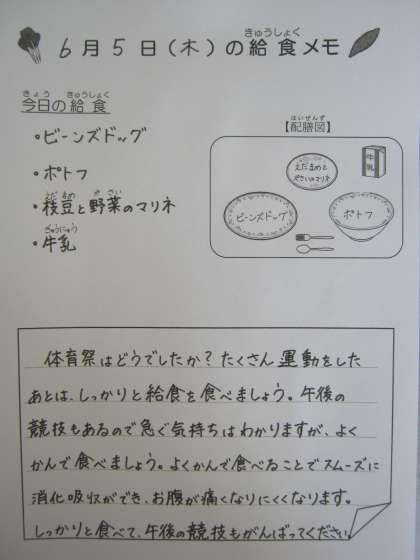 きゅうしょく
6月5日(木)の給食メモ
きょう きゅうしょく
今日の給食
・ビーンズドッグ
・ポトフ
えだまめ やさい
・枝豆と野菜のマリネ
ぎゅうにゅう
・牛乳
はいぜんず
【配膳図】
えだまめと
やさいのマリネ
牛乳
ビーンズドッグ
ポトフ
体育祭はどうでしたか?たくさん運動をした
あとは、しっかりと給食を食べましょう。午後の
競技もあるので急ぐ気持ちはわかりますが、よく
かんで食べましょう。よくかんで食べることでスムーズに
消化吸収ができ、お腹が痛くなりにくくなります。
しっかりと食べて、午後の競技もがんばってください。